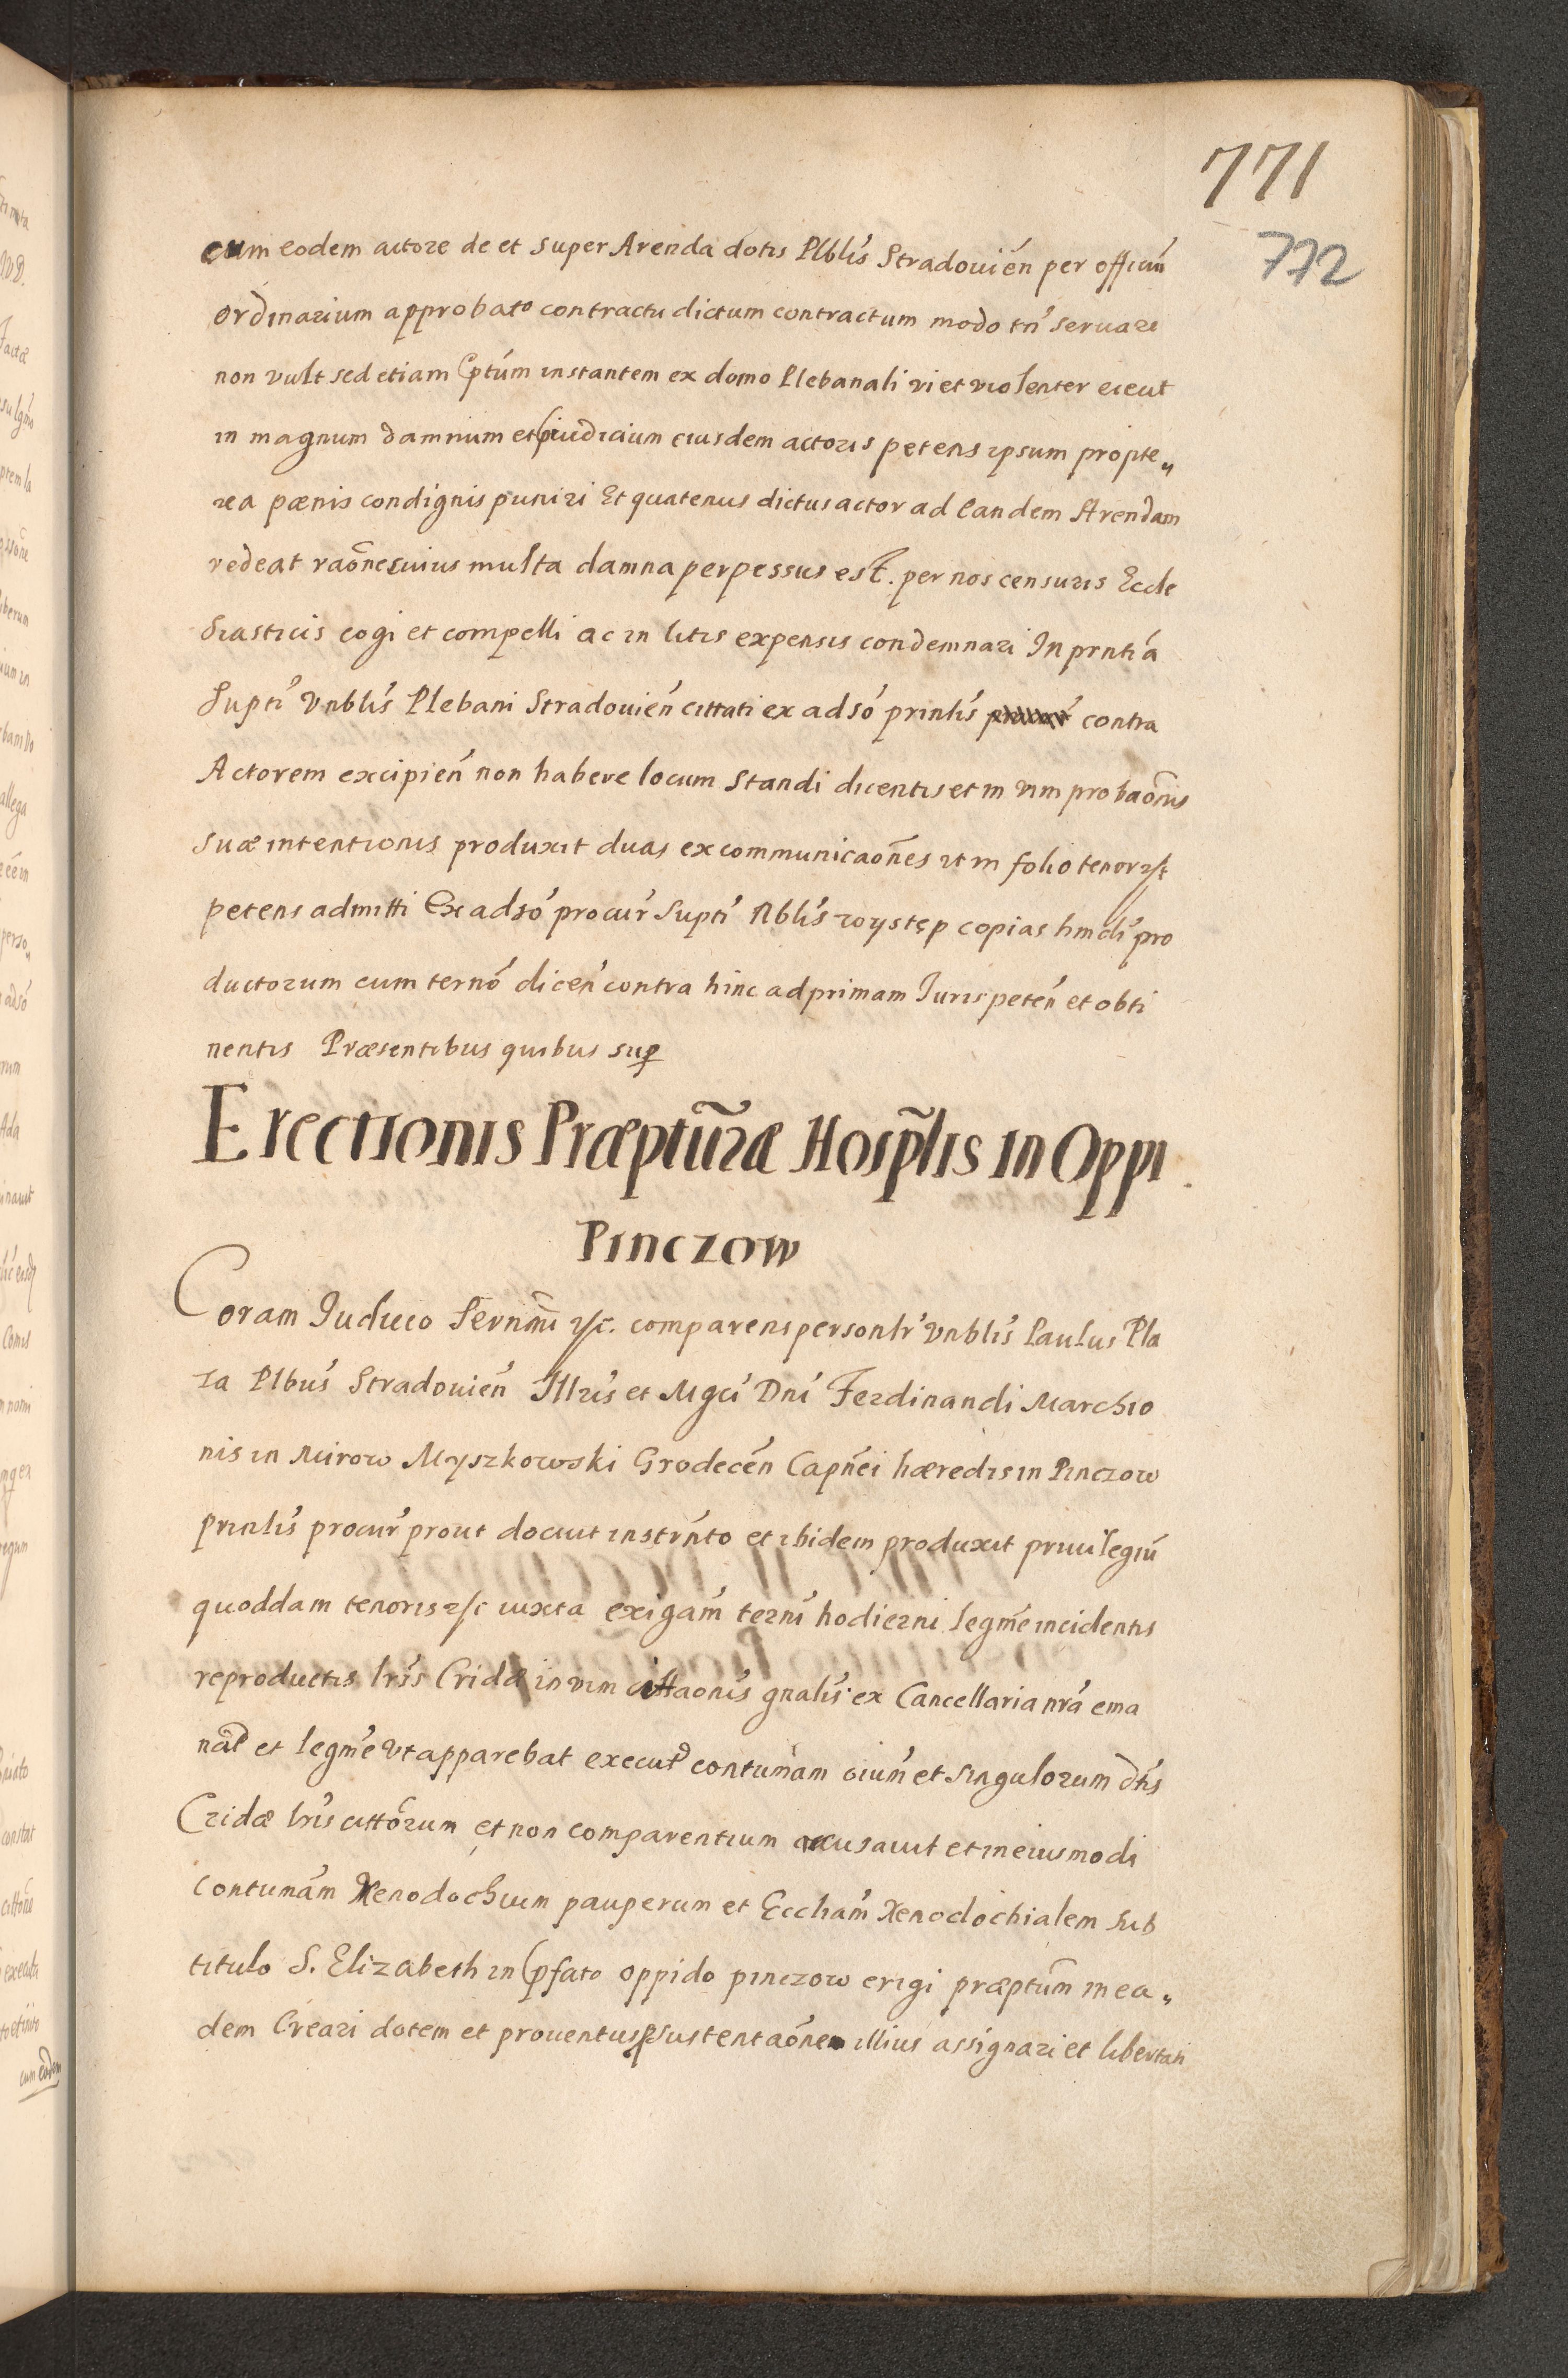 771
772
cum eodem actore de et super Arenda dotis Plblis Stradouien per officiu
ordinarium approbato contractu dictum contractum modo tn seruare
non vult sed etiam pptum instantem ex domo Plebanali vi et violenter eiecit
in magnum damnum et piudicium eiusdem actoris petens ipsum propte„
rea pœnis condignis puniri Et quatenus dictus actor ad Eandem Arendam
redeat raone cuius multa damna perpessus est. per nos censuris Eccle
siasticis cogi et compelli ac in litis expensis condemnari In prntia
Supti Vnblis Plebani Stradouien cittati ex adso prinlis contra
Actorem excipien non habere locum standi dicentis et in vim probaonis
suæ intentionis produxit duas excommunicaones ut in folio tenor
petens admitti Ex adso procur Supti Nblis występ copias hmdi pro
ductorum cum terno dicen contra hinc ad primam Iuris peten et obti
nentis Præsentibus quibus sup
Erectionis Præpturæ Hosplis in Oppi
Pinczow
Coram Iudicio Fernmi etc. comparens personlr Vnblis Paulus Pla
za Plbus Stradouien Illris et Mgci Dni Ferdinandi Marchio
nis in Mirow Myszkowski Grodecen Capnei hæredis in Pinczow
prinlis procur prout docuit instrnto et ibidem produxit priuilegiu
quoddam tenoris etc iuxta exigam terni hodierni legme incidentis
reproductis lris Cridæ in vim cittaonis gnalis ex Cancellaria nra ema
nat et legme vt apparebat execut contumam oium et singulorum dtis
Cridæ lris cittorum et non comparentium accusauit et in eiusmodi
contumam Xenodochium pauperum et Eccliam Xenodochialem sub
titulo S. Elizabeth in pfato oppido pinczow erigi præptum in ea„
dem Creari dotem et prouentus p sustentaone illius assignari et libertati